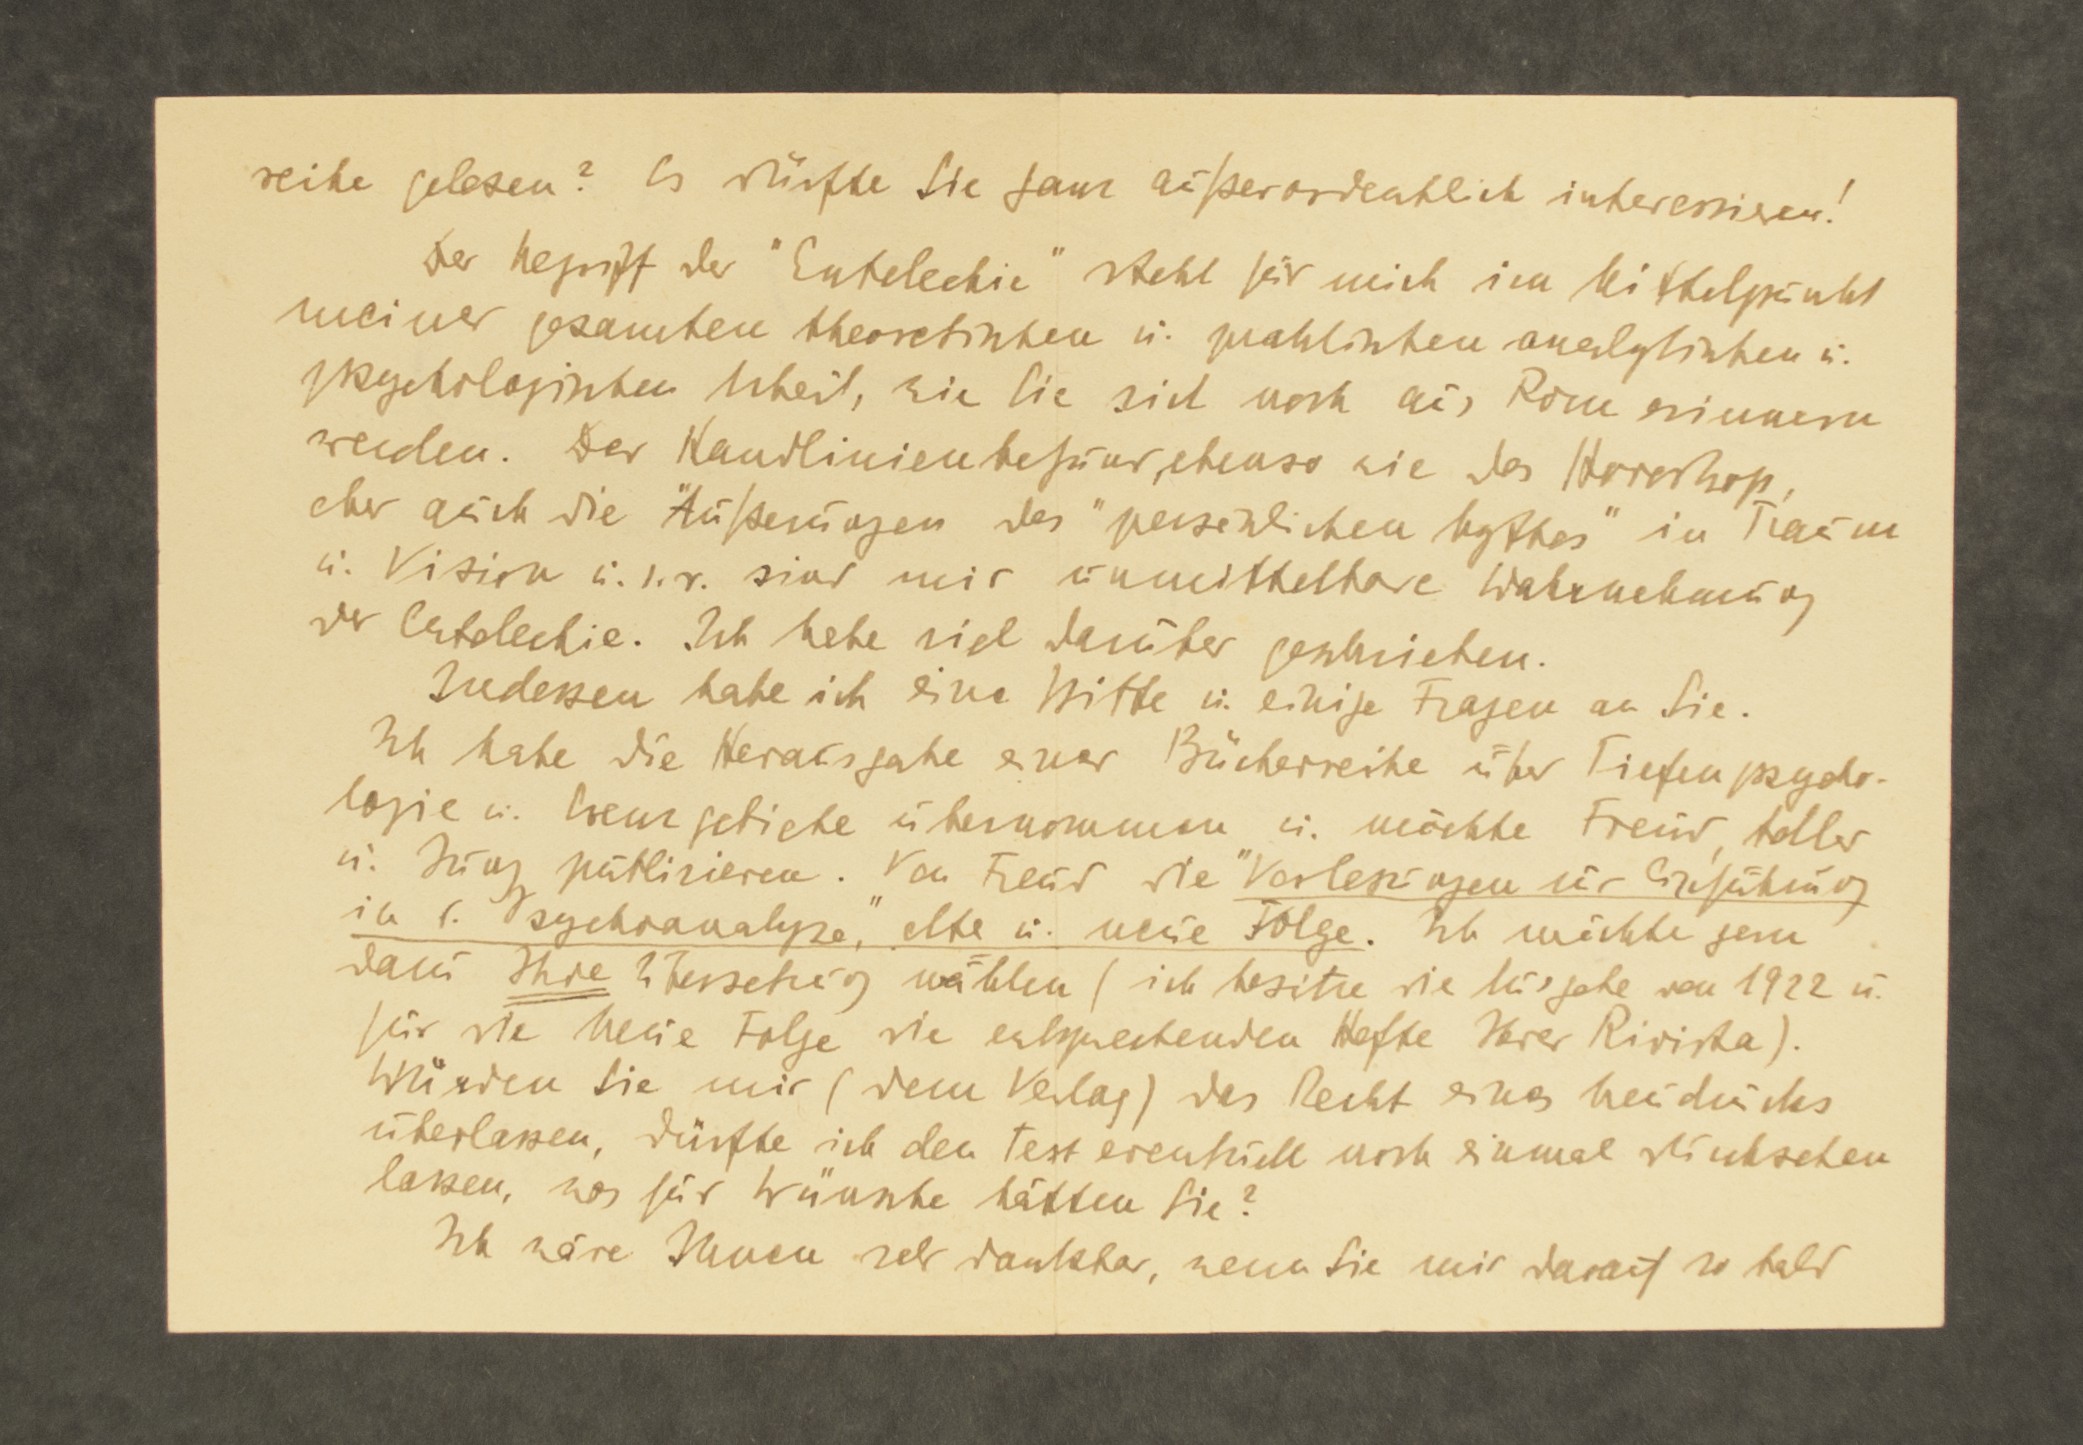 reihe gelesen? Es dürfte Sie ganz außerordentlich interessieren!
Der Begriff der "Entelechie" steht für mich im Mittelpunkt
meiner gesamten theoretischen u. praktischen analytischen u.
psychologischen Arbeit, wie Sie sich noch aus Rom erinnern
werden. Der Handlinienbefund, ebenso wie das Horoskop,
aber auch die Äußerungen des "persönlichen Mythos" in Traum
u. Vision u.s.w. sind mir unmittelbare Wahrnehmung
der Entelechie. Ich habe viel darüber geschrieben.
Indessen habe ich eine Bitte u. einige Fragen an Sie.
Ich habe die Herausgabe einer Bücherreihe über Tiefenpsycho-
logie u. Grenzgebiete übernommen u. möchte Freud, Adler
u. Jung publizieren. Von Freud die "Vorlesungen zur Einführung
in d. Psychoanalyse," alte u. neue Folge. Ich möchte gern
dazu Ihre Übersetzung wählen (ich besitze die Ausgabe von 1922 u.
für die Neue Folge die entsprechenden Hefte Ihrer Rivista).
Würden Sie mir (dem Verlag) das Recht eines Neudrucks
überlassen, dürfte ich den Text eventuell noch einmal durchsehen
lassen, was für Wünsche hätten Sie?
Ich wäre Ihnen sehr dankbar, wenn Sie mir darauf so bald